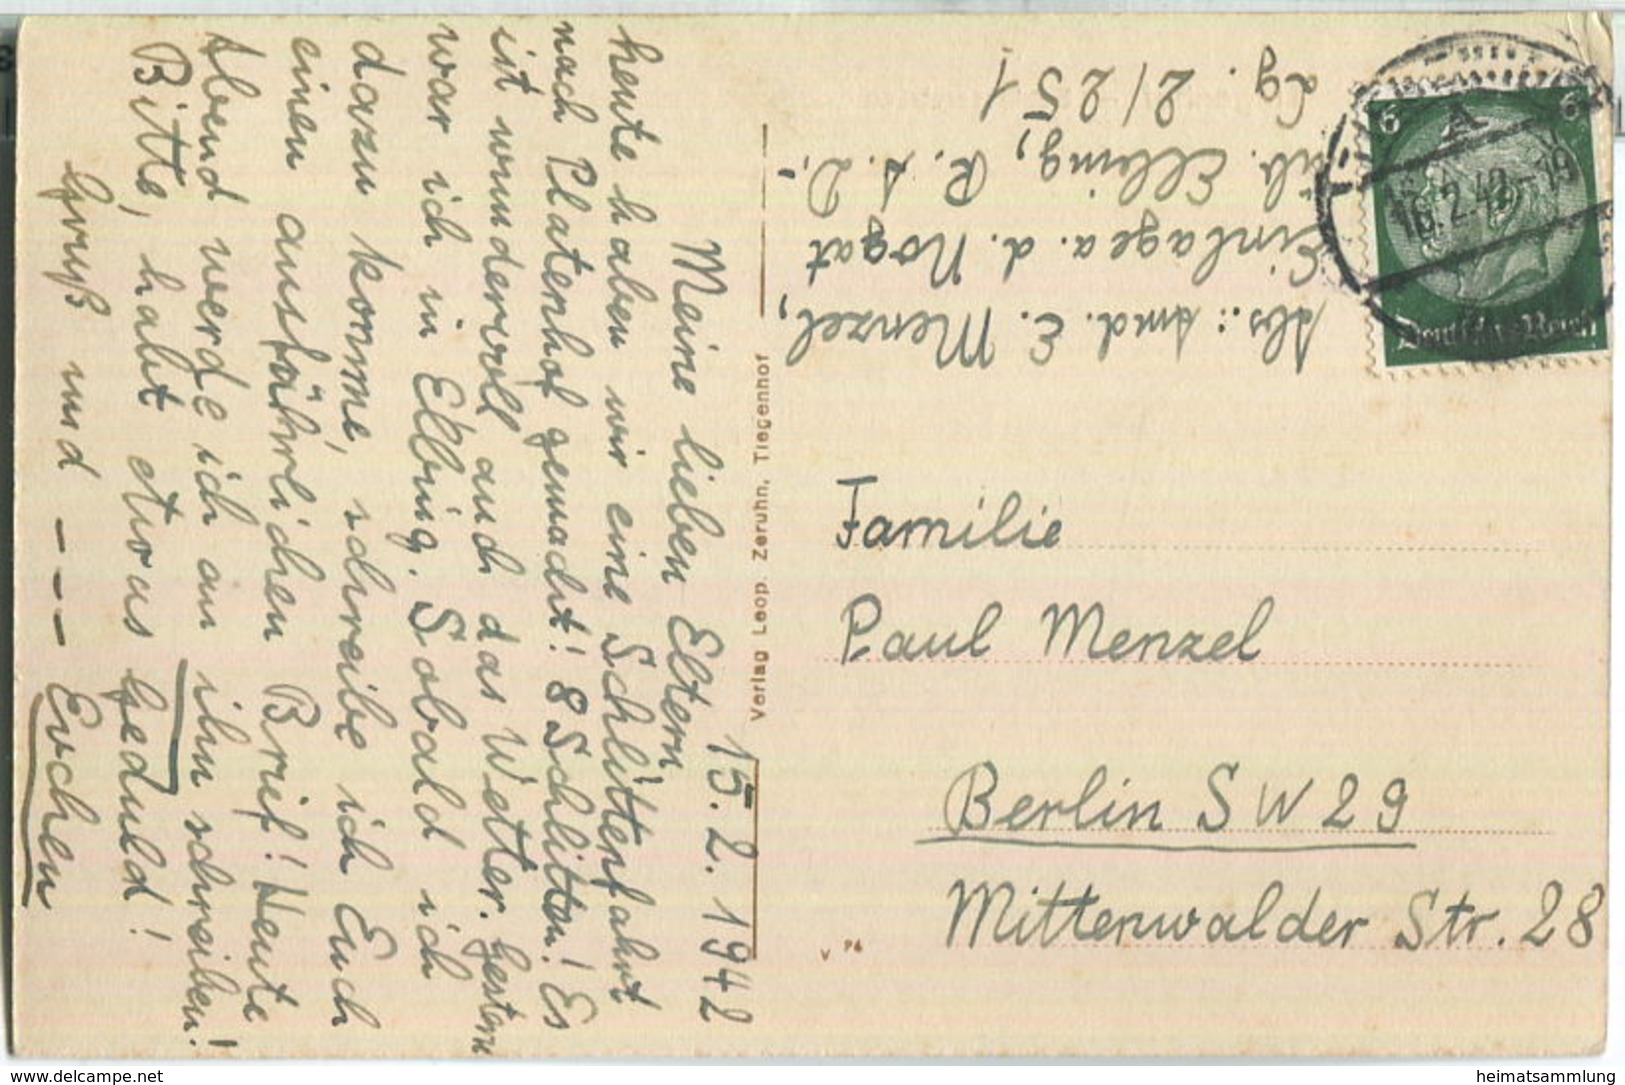 15. 2. 1942
Meine lieben Eltern,
heute haben wir eine Schlittenfahrt
nach Platenhof gemacht! 8 Schlitten! Es
ist wundervoll auch das Wetter. Gestern
war ich in Elbing. Sobald ich
dazu komme, schreibe ich Euch
einen ausführlichen Brief! Heute
Abend werde ich an ihn schreiben!
Bitte, habt etwas Geduld!
Gruß und - - - Evchen
Verlag Leop. Zeruhn, Tiegenhof
Abs.: Amd. E. Menzel,
Einlage a. d. Nogat
üb. Elbing, R. A. D.-
Lg. 2/251
6 6
A
16.2.42-19
Deutsches Reich
Familie
Paul Menzel
Berlin SW 29
Mittenwalder Str. 28
https://www.delcampe.net
heimatsammlung